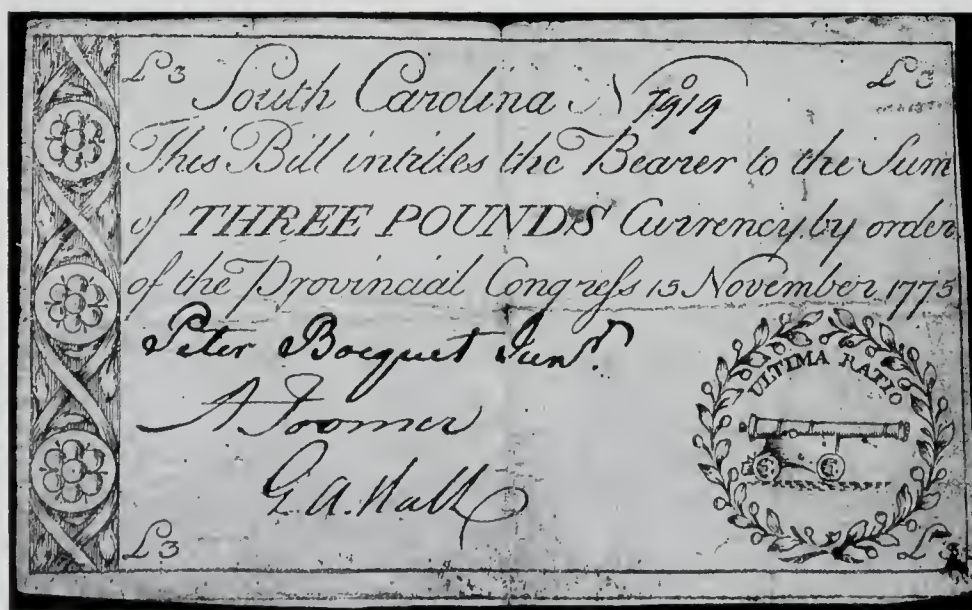 £3 South Carolina No 7919 £3
This Bill intitles the Bearer to the Sum
of THREE POUNDS Currency by order
of the Provincial Congreſs 15 November 1775
Peter Bocquet Junr.
A Toomer
G. A. Hall
ULTIMA RATIO
£3 £3